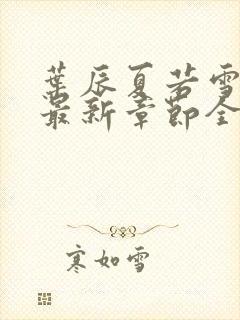 葉辰夏若雪
最新章節全
寒如雪